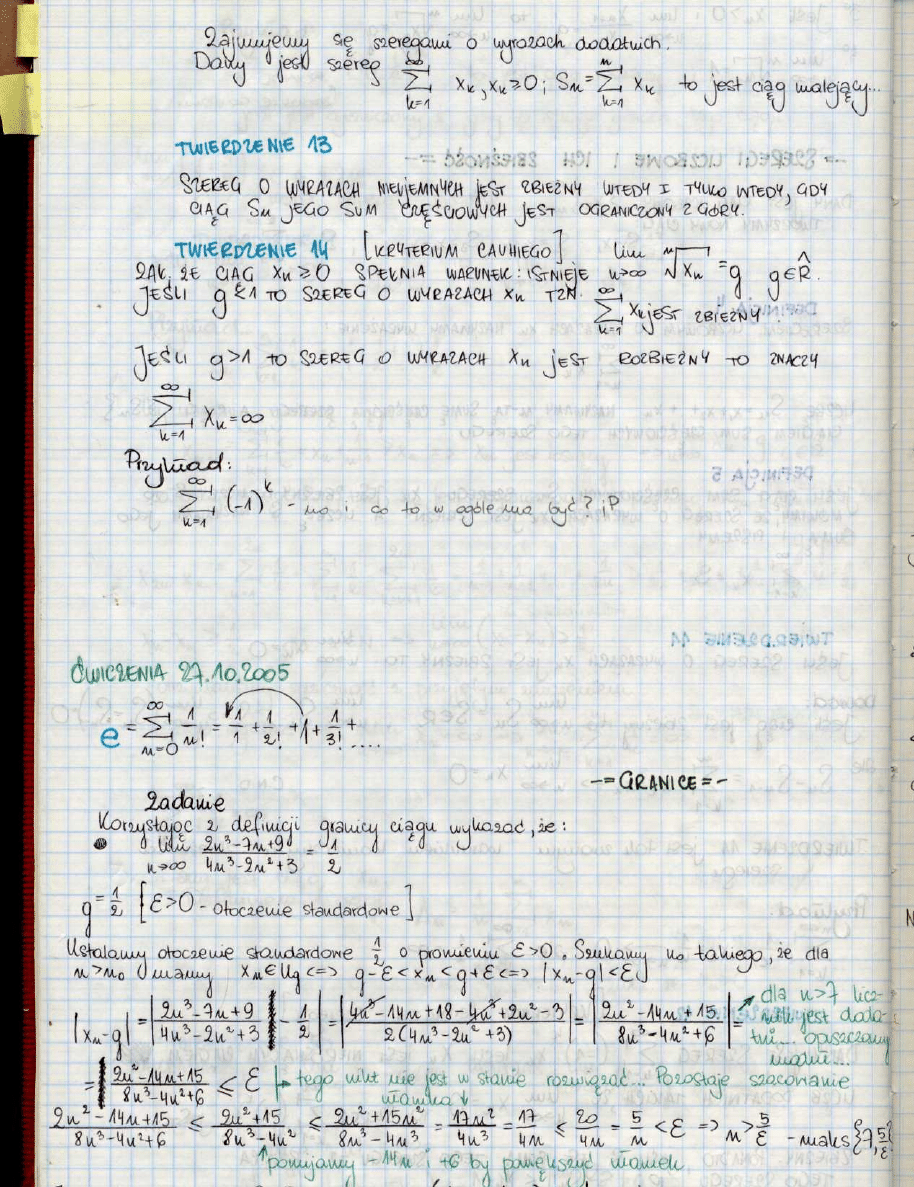 Zajmujemy się szeregami o wyrazach dodatnich.
Dany jest szereg ∑_{k=1}^{∞} x_k, x_k ≥ 0; S_n = ∑_{k=1}^{n} x_k to jest ciąg malejący...
TWIERDZENIE 13
SZEREG O WYRAZACH NIEUJEMNYCH JEST ZBIEŻNY WTEDY I TYLKO WTEDY, GDY
CIĄG S_n JEGO SUM CZĘŚCIOWYCH JEST OGRANICZONY Z GÓRY.
TWIERDZENIE 14 [KRYTERIUM CAUHIEGO]
ZAŁ, ŻE CIĄG x_n ≥ 0 SPEŁNIA WARUNEK: ISTNIEJE lim_{n→∞} \sqrt[n]{x_n} = g g ∈ \hat{R}.
JEŚLI g < 1 TO SZEREG O WYRAZACH x_n TZN. ∑_{k=1}^{∞} x_k JEST ZBIEŻNY
JEŚLI g > 1 TO SZEREG O WYRAZACH x_n JEST ROZBIEŻNY TO ZNACZY
∑_{k=1}^{∞} x_k = ∞
Przykład:
∑_{k=1}^{∞} (-1)^k - no i co to w ogóle ma być? ;P
ĆWICZENIA 27.10.2005
e = ∑_{n=0}^{∞} 1/n! = 1/1 + 1/2! + 1 + 1/3! + ....
-=GRANICE=-
Zadanie
Korzystając z definicji granicy ciągu wykazać, że:
lim_{n→∞} (2n³-7n+9)/(4n³-2n²+3) = 1/2
g = 1/2 [ε>0 - otoczenie standardowe]
Ustalamy otoczenie standardowe 1/2 o promieniu ε>0. Szukamy n₀ takiego, że dla
n>n₀ mamy x_n ∈ U_g <=> g-ε < x_n < g+ε <=> |x_n-g| < ε
|x_n-g| = |(2n³-7n+9)/(4n³-2n²+3) - 1/2| = |(4n³-14n+18-4n³+2n²-3)/(2(4n³-2n²+3))| = |(2n²-14n+15)/(8n³-4n²+6)| =
dla n>7 licz-
nik jest doda-
tni... opuszczamy
moduł...
= (2n²-14n+15)/(8n³-4n²+6) ≤ ε tego nikt nie jest w stanie rozwiązać... Pozostaje szacowanie
ułamka ↓
(2n²-14n+15)/(8n³-4n²+6) ≤ (2n²+15)/(8n³-4n²) ≤ (2n²+15n²)/(8n³-4n³) = 17n²/4n³ = 17/4n ≤ 20/4n = 5/n < ε => n > 5/ε - maks{7, 5/ε}
↑ pomijamy -14n i +6 by powiększyć ułamek